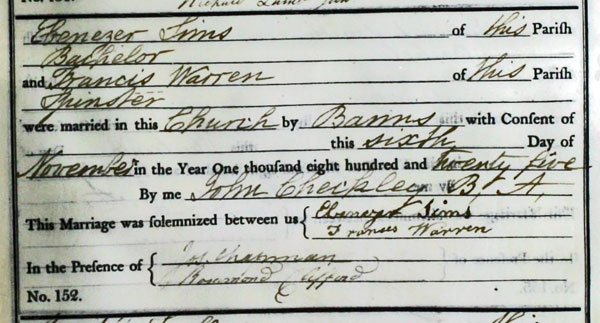 Ebenezer Sims of this Parish
Bachelor
and Francis Warren of this Parish
Spinster
were married in this Church by Banns with Consent of
this sixth Day of
November in the Year One thousand eight hundred and twenty five
By me John Checkley B A
This Marriage was solemnized between us { Ebenezer Sims
Frances Warren
In the Presence of { Jos Chapman
Rosomond Clifford
No. 152.